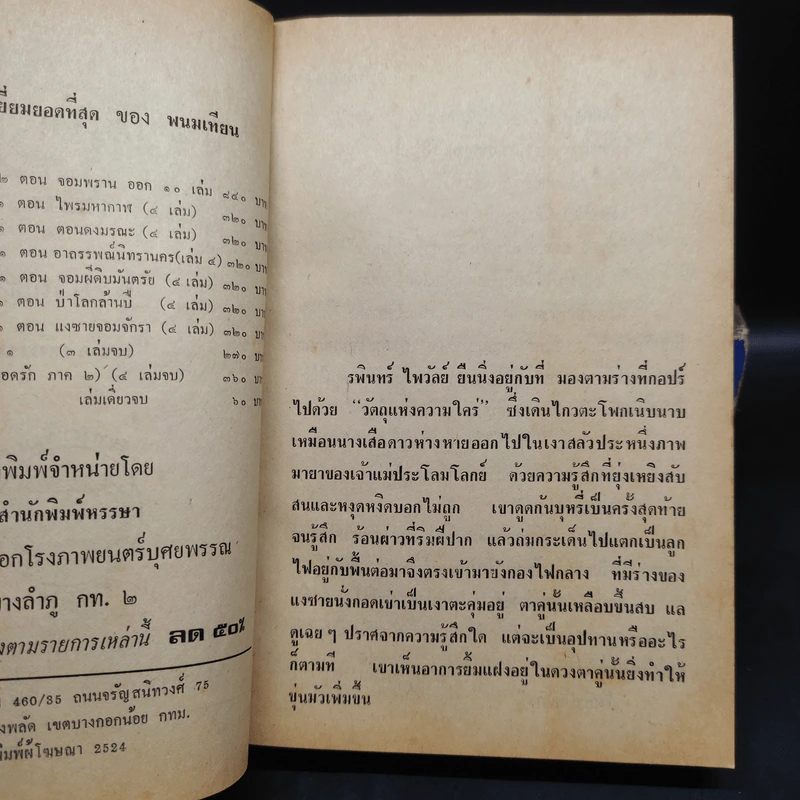 ยี่ยมยอดที่สุด ของ พนมเทียน
๒ ตอน จอมพราน ออก ๑๐ เล่ม ๘๔๐ บาท
๑ ตอน ไพรมหากาฬ (๔ เล่ม) ๓๒๐ บาท
๑ ตอน ตอนดงมรณะ (๔ เล่ม) ๓๒๐ บาท
๑ ตอน อาถรรพณ์นิทรานคร(เล่ม ๔) ๓๒๐ บาท
๑ ตอน จอมผีดิบมันตรัย (๔ เล่ม) ๓๒๐ บาท
๑ ตอน ป่าโลกล้านปี (๔ เล่ม) ๓๒๐ บาท
๑ ตอน แงซายจอมจักรา (๔ เล่ม) ๓๒๐ บาท
๑ (๓ เล่มจบ) ๒๗๐ บาท
อดรัก ภาค ๒) (๔ เล่มจบ) ๓๖๐ บาท
เล่มเดี่ยวจบ ๖๐ บาท
พิมพ์จำหน่ายโดย
สำนักพิมพ์หรรษา
อกโรงภาพยนตร์บุศยพรรณ
างลำภู กท. ๒
งตามรายการเหล่านี้ ลด ๕๐%
460/35 ถนนจรัญสนิทวงศ์ 75
งพลัด เขตบางกอกน้อย กทม.
พิมพ์ผู้โฆษณา 2524
รพินทร์ ไพวัลย์ ยืนนิ่งอยู่กับที่ มองตามร่างที่กอปร์
ไปด้วย “วัตถุแห่งความใคร่” ซึ่งเดินไกวตะโพกเนิบนาบ
เหมือนนางเสือดาวห่างหายออกไปในเงาสลัวประหนึ่งภาพ
มายาของเจ้าแม่ประโลมโลกย์ ด้วยความรู้สึกที่ยุ่งเหยิงสับ
สนและหงุดหงิดบอกไม่ถูก เขาดูดก้นบุหรี่เป็นครั้งสุดท้าย
จนรู้สึก ร้อนผ่าวที่ริมฝีปาก แล้วถ่มกระเด็นไปแตกเป็นลูก
ไฟอยู่กับพื้นต่อมาจึงตรงเข้ามายังกองไฟกลาง ที่มีร่างของ
แงซายนั่งกอดเข่าเป็นเงาตะคุ่มอยู่ ตาคู่นั้นเหลือบขึ้นสบ แล
ดูเฉยๆ ปราศจากความรู้สึกใด แต่จะเป็นอุปทานหรืออะไร
ก็ตามที เขาเห็นอาการยิ้มแฝงอยู่ในดวงตาคู่นั้นยิ่งทำให้
ขุ่นมัวเพิ่มขึ้น